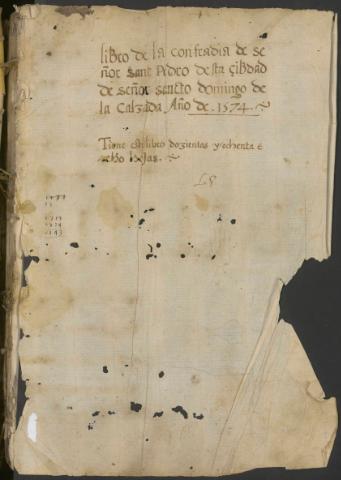 libro de la confradia de se
ñor sant Pedro desta çibdad
de señor sancto domingo de
la Calzada Año de .1574.
Tiene este libro dozientas y ochenta e
ocho hojas.